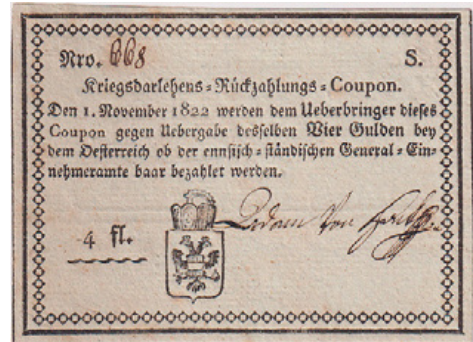 Nro. 668 S.
Kriegsdarlehens-Rückzahlungs-Coupon.
Den 1. November 1822 werden dem Ueberbringer dieses
Coupon gegen Uebergabe desselben Vier Gulden bey
dem Oesterreich ob der ennsisch-ständischen General-Ein-
nehmeramte baar bezahlet werden.
4 fl.